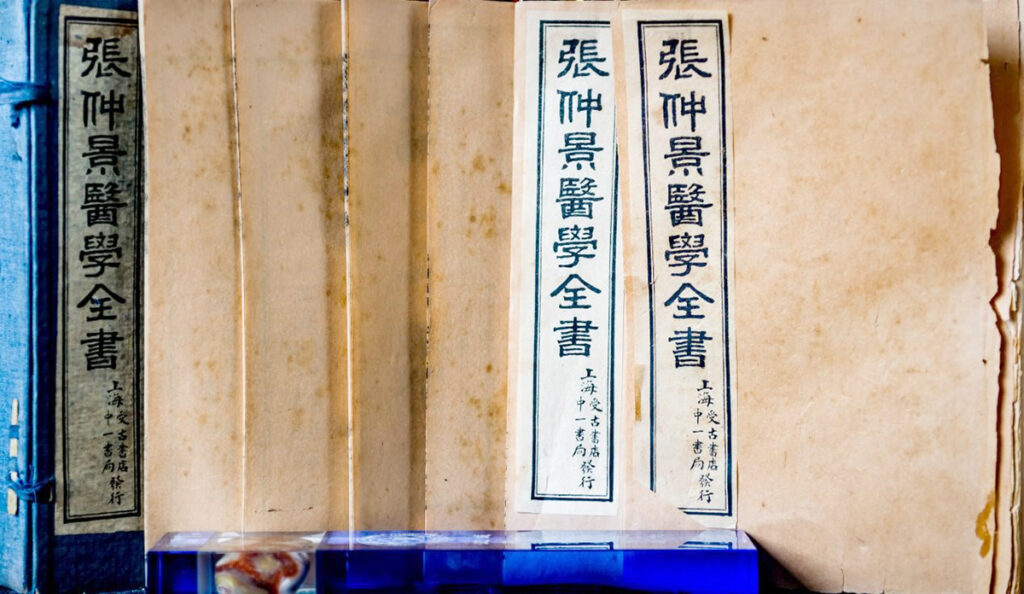 張仲景醫學全書
上海
受古書店
中一書局
發行
張仲景醫學全書
上海
受古書店
中一書局
發行
張仲景醫學全書
上海
受古書店
中一書局
發行